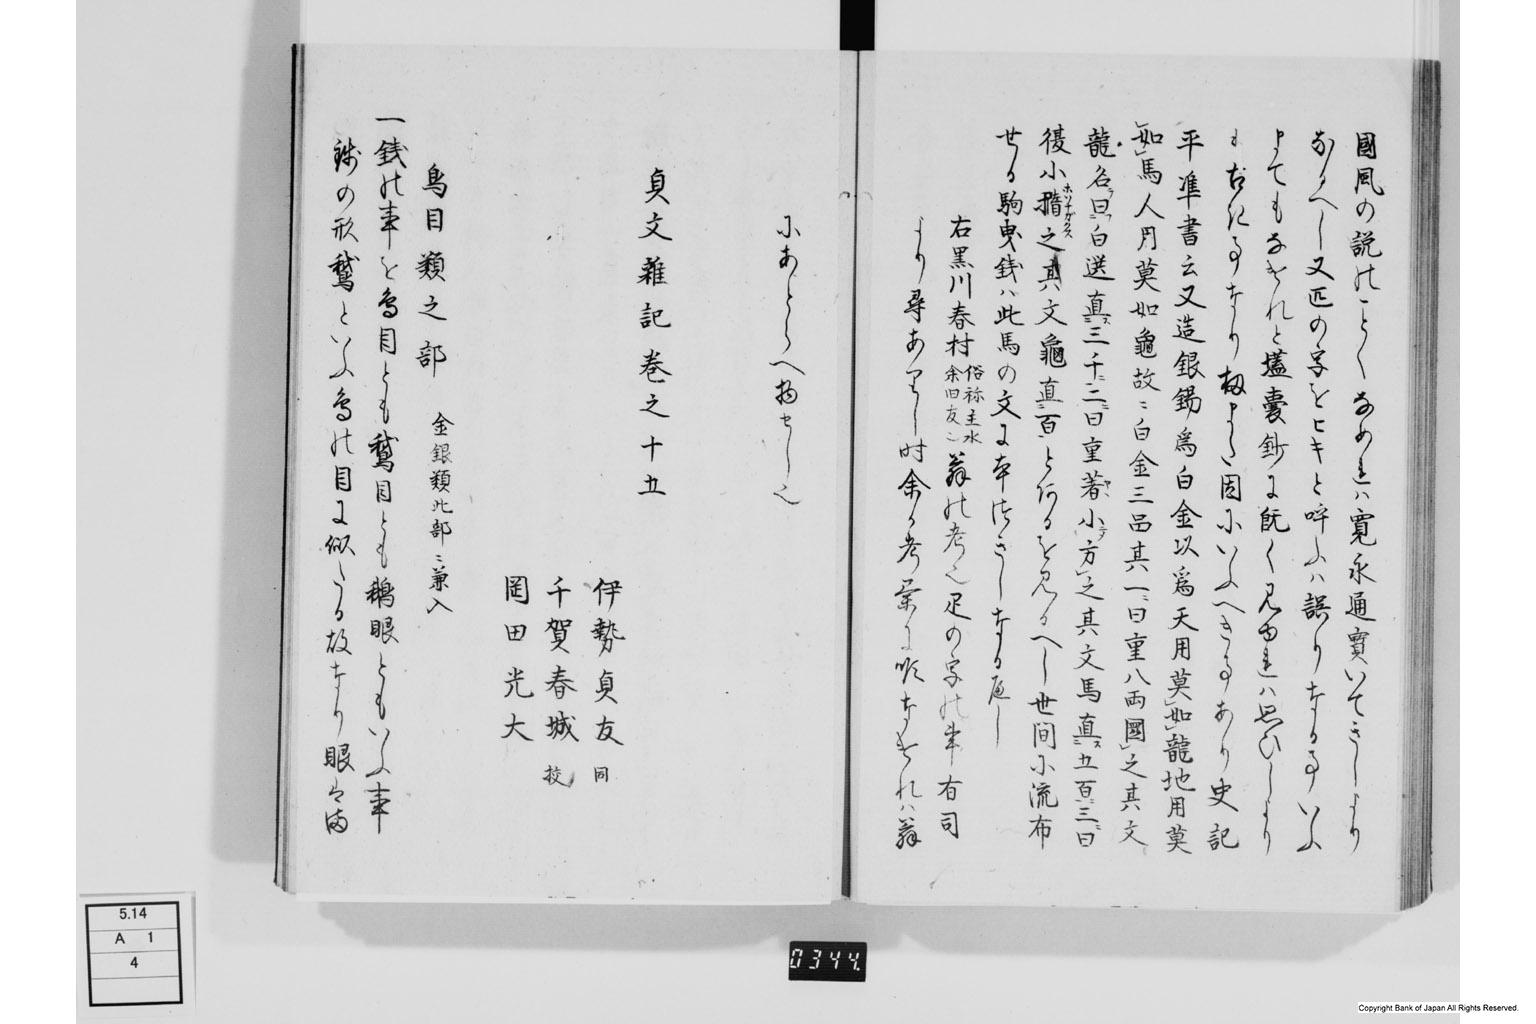 國風の説のことくなめれは寛永通寳いてきしより
なるへし又疋の字をヒキと呼ふは誤りなる事いふ
まてもなけれと壒嚢鈔に既く見ゆれは思ひしより
も古き事なり
因にいふへき事あり史記
平準書云又造銀錫爲白金以爲天用莫如龍地用莫
如馬人用莫如龜故ニ白金三品其一ニ曰重八兩圜之其文
龍名曰白選直三千二ニ曰重著小方之其文馬直五百三ニ曰
復小橢之其文龜直三百とあるを見るへし世間に流布
せる駒曳銭ハ此馬の文に
右黒川春村俗称主水余旧友ニ翁の考也疋の字の事有司
より尋ありし時余か考
なけれハ翁
にあとらへ物せし也
貞文雜記巻之十五
伊勢貞友 同
千賀春城 校
岡田光大
鳥目類之部 金銀類此部ニ兼入
一銭の事を鳥目とも鵞目とも鵝眼ともいふ事
銭の形鵞といふ鳥の目に似たる故なり眼はま
5.14
A 1
4
0344.
Copyright Bank of Japan All Rights Reserved.